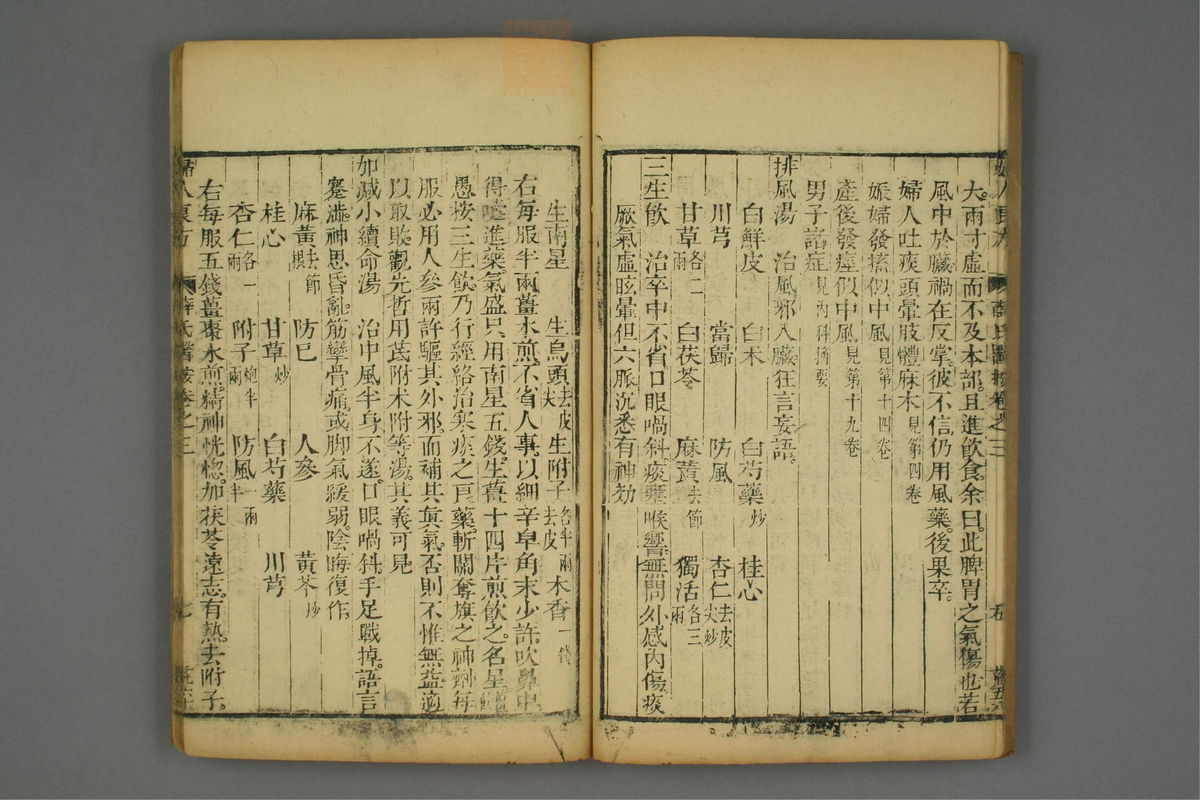 大而寸虛而不及本部且進飲食余曰此脾胃之氣傷也若
風中於臟禍在反掌彼不信仍用風藥後果卒
婦人吐痰頭暈肢體麻木見第四卷
娠婦發搐似中風見第十四卷
產後發痙似中風見第十九卷
男子諸症見內科摘要
排風湯 治風邪入臟狂言妄語
白鮮皮 白朮 白芍藥炒 桂心
川芎 當歸 防風 杏仁去皮尖炒
甘草各二兩 白茯苓 麻黃去節 獨活各三兩
三生飲 治卒中不省口眼喎斜痰壅喉響無問外感內傷痰
厥氣虛眩暈但六脈沉悉有神効
生南星 生烏頭去皮尖 生附子各半兩去皮 木香一錢
右每服半兩薑水煎不省人事以細辛皁角末少許吹鼻中
得嚏進藥氣盛只用南星五錢生薑十四片煎飲之名星香飲
愚按三生飲乃行經絡治寒痰之良藥斬關奪旗之神劑每
服必用人參兩許驅其外邪而補其真氣否則不惟無益適
以取敗觀先哲用芪附朮附等湯其義可見
加減小續命湯 治中風半身不遂口眼喎斜手足戰掉語言
蹇澁神思昏亂筋攣骨痛或脚氣緩弱陰晦復作
麻黃去節根 防已 人參 黃芩炒
桂心 甘草炒 白芍藥 川芎
杏仁各一兩 附子炮半兩 防風一兩半
右每服五錢薑棗水煎精神恍惚加茯苓遠志有熱去附子
婦人良方 薛氏醫按卷之三 七